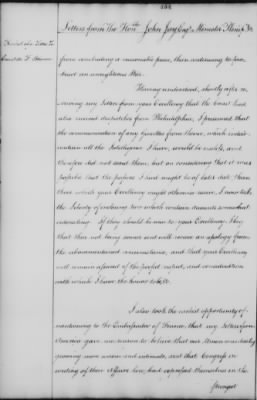 Letters from The Honble John Jay Esqr Minister Plenipo &c
from concluding a reasonable peace, than continuing to pro-
duct an unrighteous War.
Having understood, shortly after re-
ceiving my letter from your Excellency that the Court had
also received dispatches from Philadelphia, I presumed that
the communication of any Gazettes from thence, which
contain all the Intelligence I have, would be useless, and
therefore did not send them, but on considering that it was
possible that the papers I had might be of later date than
those which your Excellency might otherwise receive, I now take
the liberty of enclosing two which contain accounts somewhat
interesting. If they should be new to your Excellency, they
that their not being sooner sent will receive an apology from
the abovementioned circumstance, and that your Excellency
will remain assured of the perfect respect, and consideration
with which I have the honor to be, &c.
I also took the earliest opportunity of
mentioning to the Embassador of France, that my letters from
America gave me reason to believe that our Union was daily
growing more warm and intimate, and that Congress in
writing of their affairs here, had expressed themselves in the
strongest